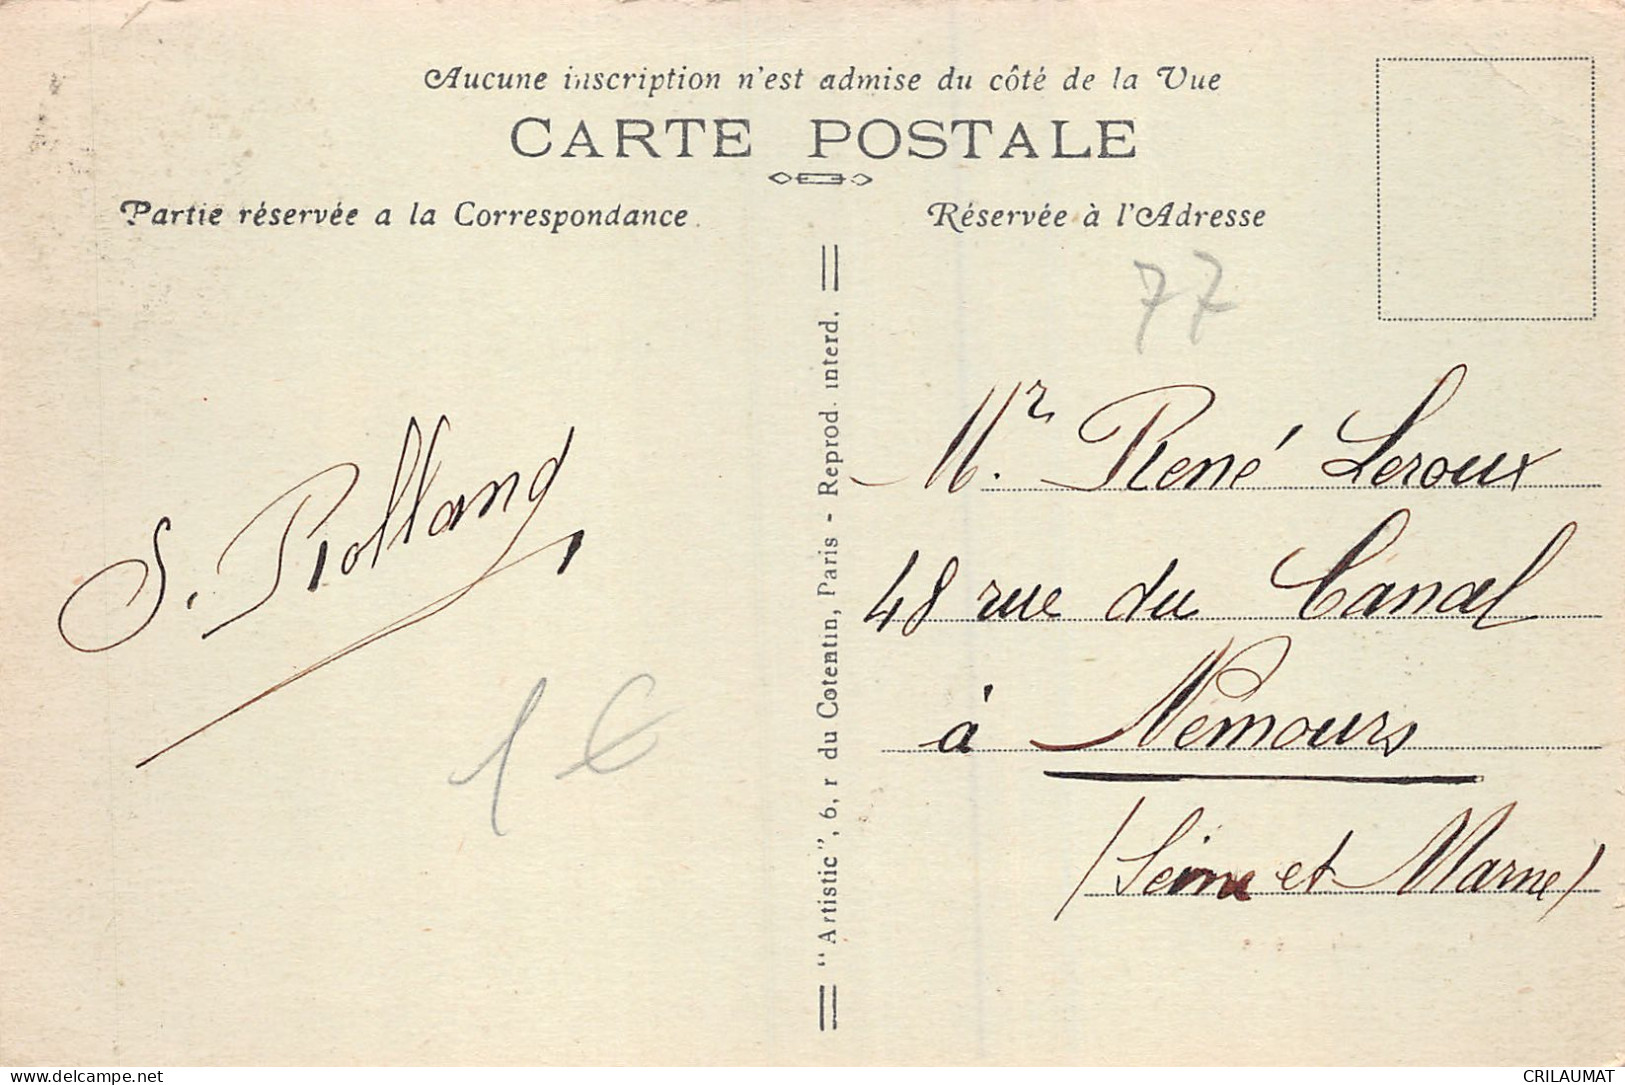 Aucune inscription n'est admise du côté de la Vue
CARTE POSTALE
Partie réservée a la Correspondance.
Réservée à l'Adresse
77
S. Rolland,
1€
"Artistic", 6, r du Cotentin, Paris - Reprod. interd.
Mr. René Leroux
48 rue du Canal
à Nemours
(Seine et Marne)
delcampe.net
CRILAUMAT